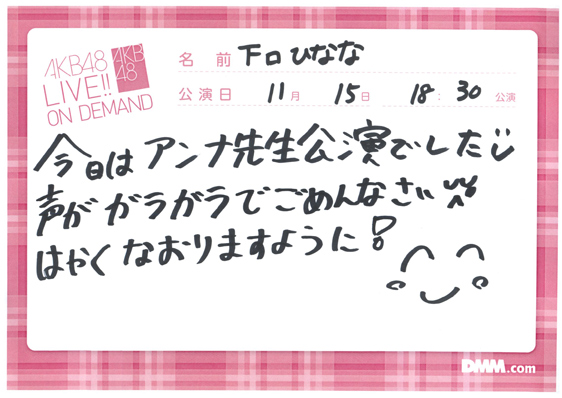 AKB48
LIVE!!
ON DEMAND
AKB
48
名前 下口ひなな
公演日 11月 15日 18:30 公演
今日はアンナ先生公演でした
声がガラガラでごめんなさい
はやくなおりますように!
DMM.com